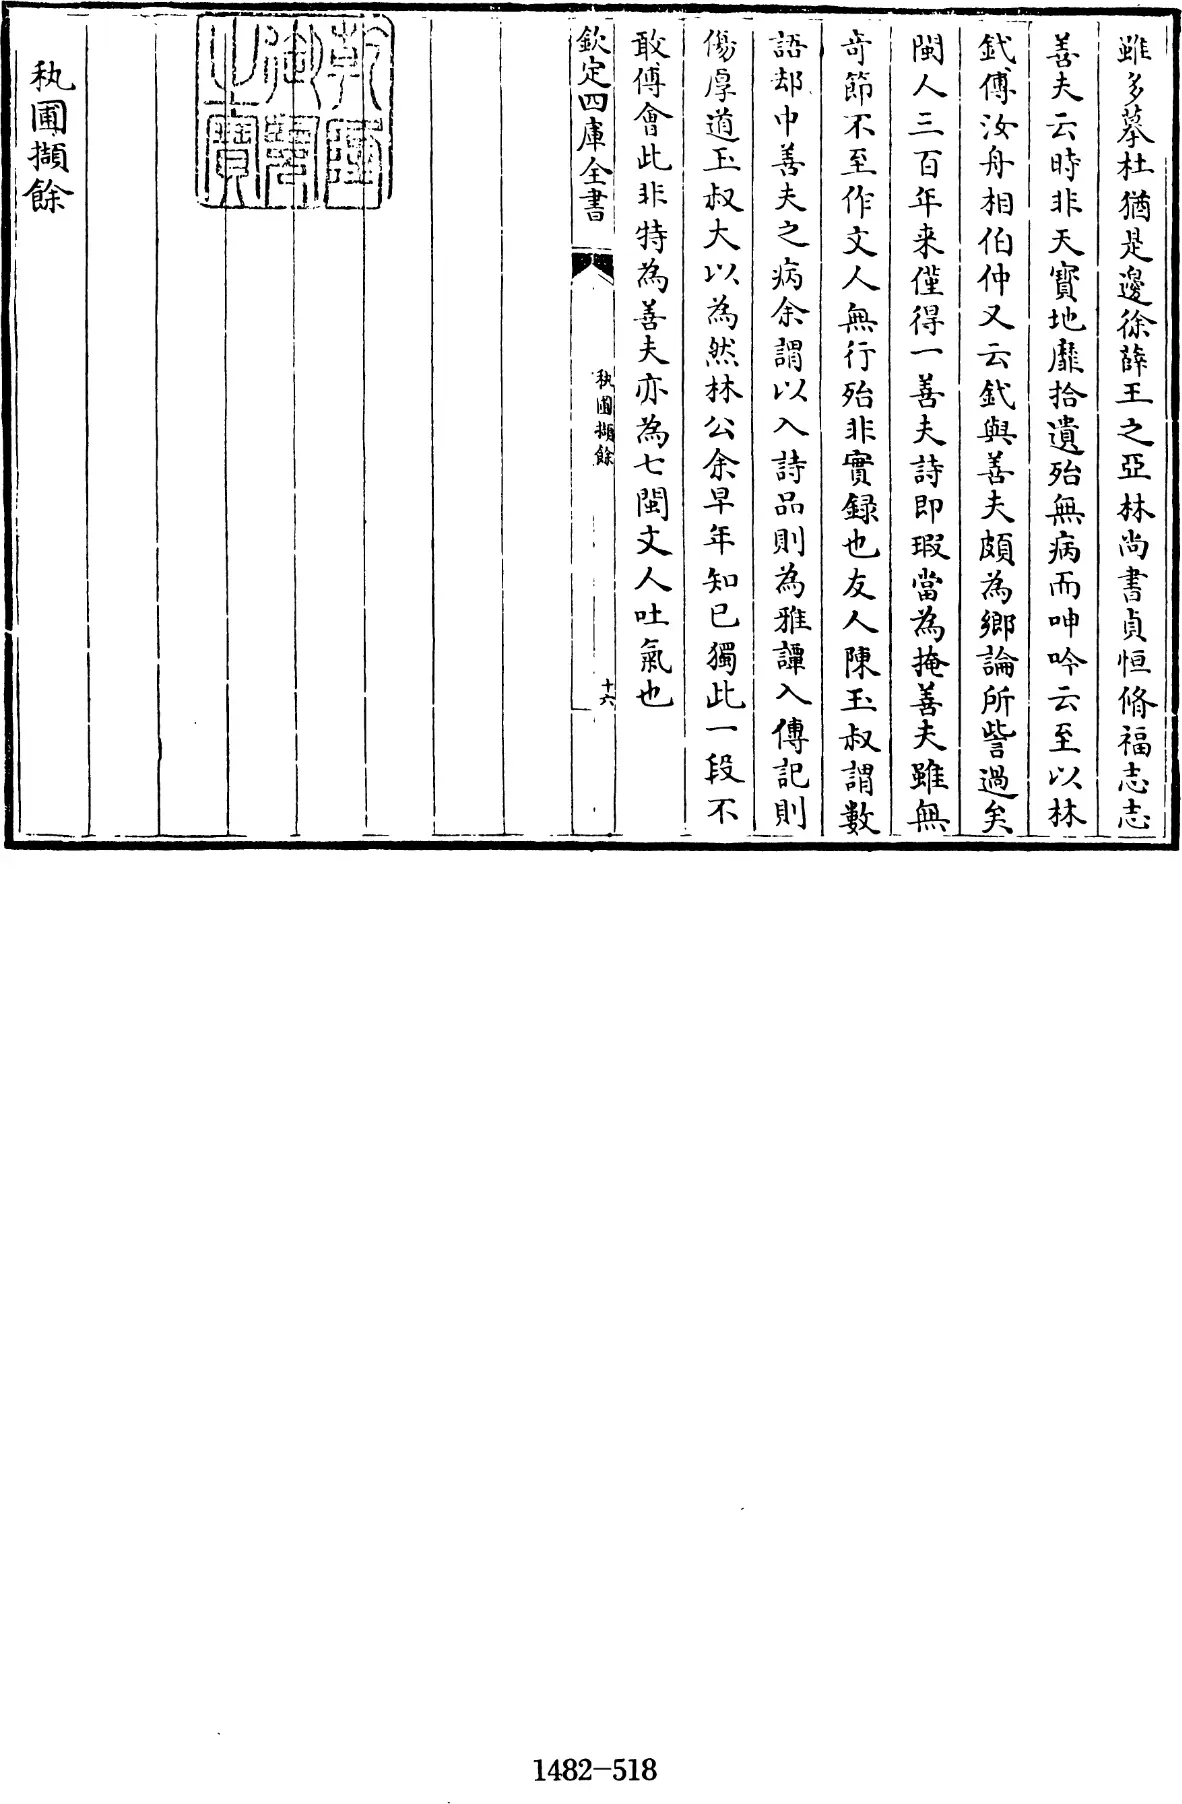 雖多摹杜猶是邊徐薛王之亞林尚書貞恒脩福志志
善夫云時非天寶地靡拾遺殆無病而呻吟云至以林
釴傅汝舟相伯仲又云釴與善夫頗為鄉論所訾過矣
閩人三百年来僅得一善夫詩即瑕當為掩善夫雖無
奇節不至作文人無行殆非實録也友人陳玉叔謂數
語却中善夫之病余謂以入詩品則為雅譚入傳記則
傷厚道玉叔大以為然林公余早年知已獨此一段不
敢傅會此非特為善夫亦為七閩文人吐氣也
欽定四庫全書
秇圃擷餘
十六
乾隆御覽之寶
秇圃擷餘
1482-518